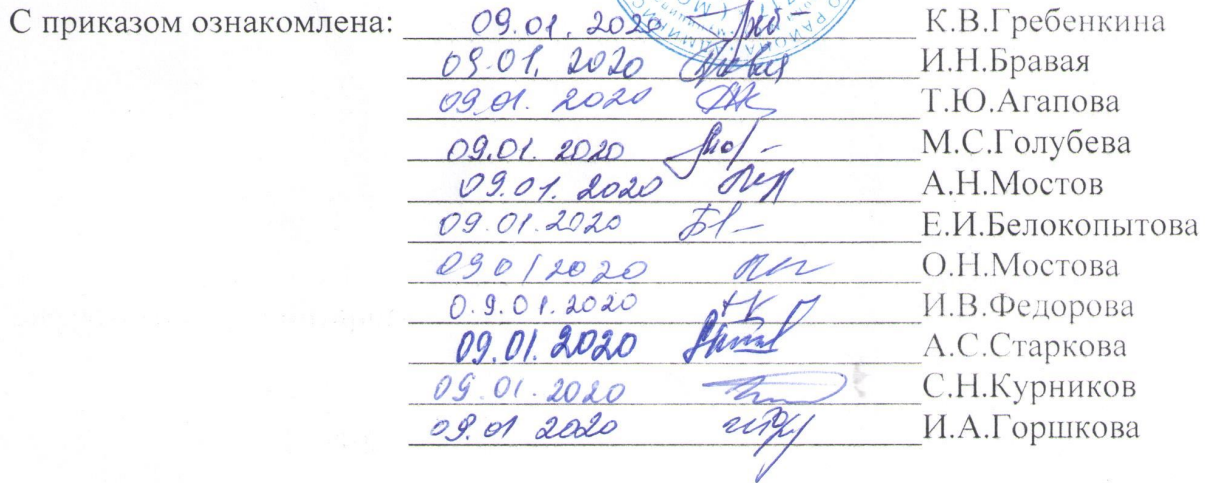 С приказом ознакомлена: 09.01.2020 К.В.Гребенкина
09.01.2020 И.Н.Бравая
09.01.2020 Т.Ю.Агапова
09.01.2020 М.С.Голубева
09.01.2020 А.Н.Мостов
09.01.2020 Е.И.Белокопытова
09 01 2020 О.Н.Мостова
0.9.01.2020 И.В.Федорова
09.01.2020 А.С.Старкова
09.01.2020 С.Н.Курников
09.01 2020 И.А.Горшкова